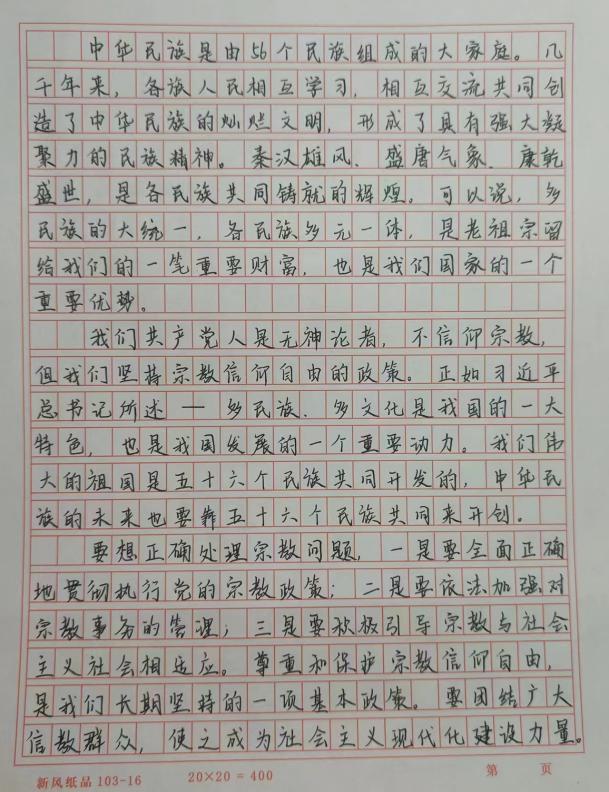 中华民族是由56个民族组成的大家庭。几
千年来，各族人民相互学习，相互交流共同创
造了中华民族的灿烂文明，形成了具有强大凝
聚力的民族精神。秦汉雄风、盛唐气象、康乾
盛世，是各民族共同铸就的辉煌。可以说，多
民族的大统一，各民族多元一体，是老祖宗留
给我们的一笔重要财富，也是我们国家的一个
重要优势。
我们共产党人是无神论者，不信仰宗教，
但我们坚持宗教信仰自由的政策。正如习近平
总书记所述一多民族、多文化是我国的一大
特色，也是我国发展的一个重要动力。我们伟
大的祖国是五十六个民族共同开发的，中华民
族的未来也要靠五十六个民族共同来开创。
要想正确处理宗教问题，一是要全面正确
地贯彻执行党的宗教政策；二是要依法加强对
宗教事务的管理；三是要积极引导宗教与社会
主义社会相适应。尊重和保护宗教信仰自由，
是我们长期坚持的一项基本政策。要团结广大
信教群众，使之成为社会主义现代化建设力量。
新风纸品 103-16 20×20=400 第 页